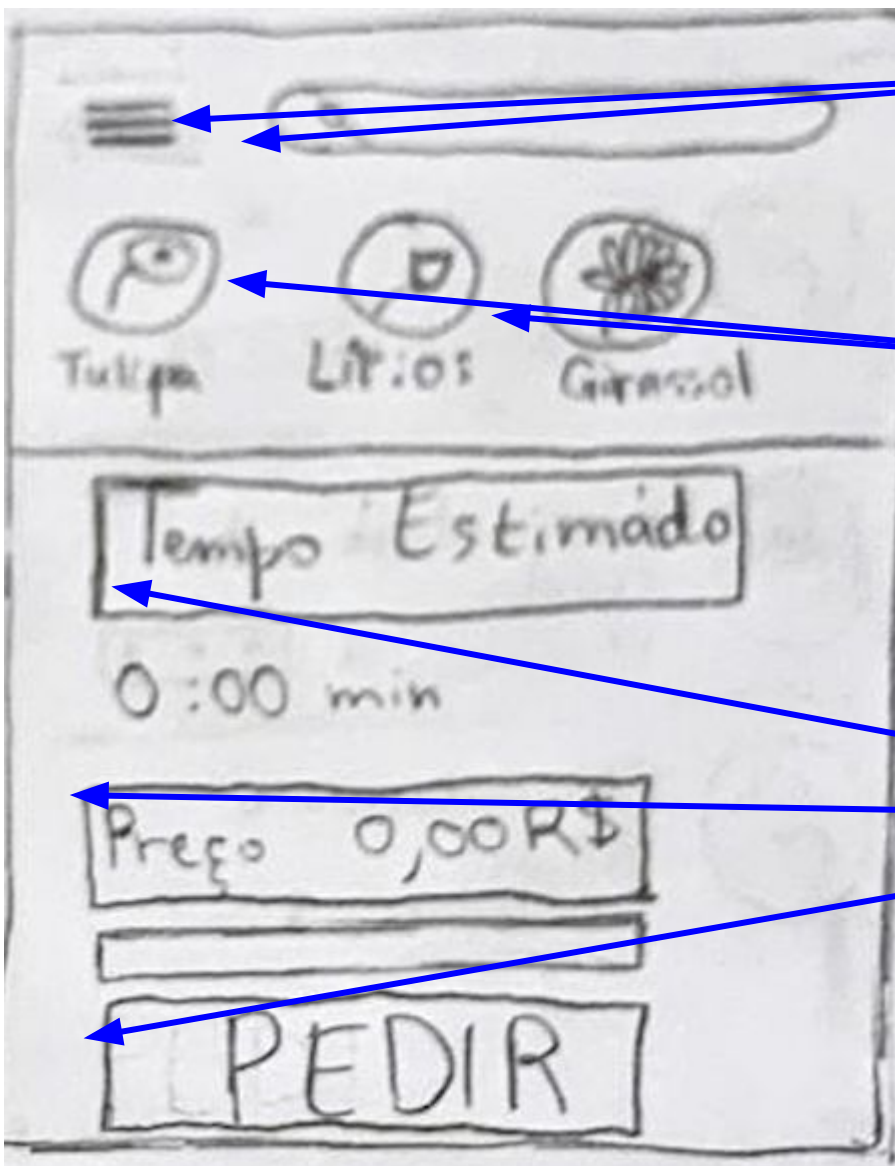 Tulipa Lírios Girassol
Tempo Estimádo
0:00 min
Preço 0,00 R$
PEDIR